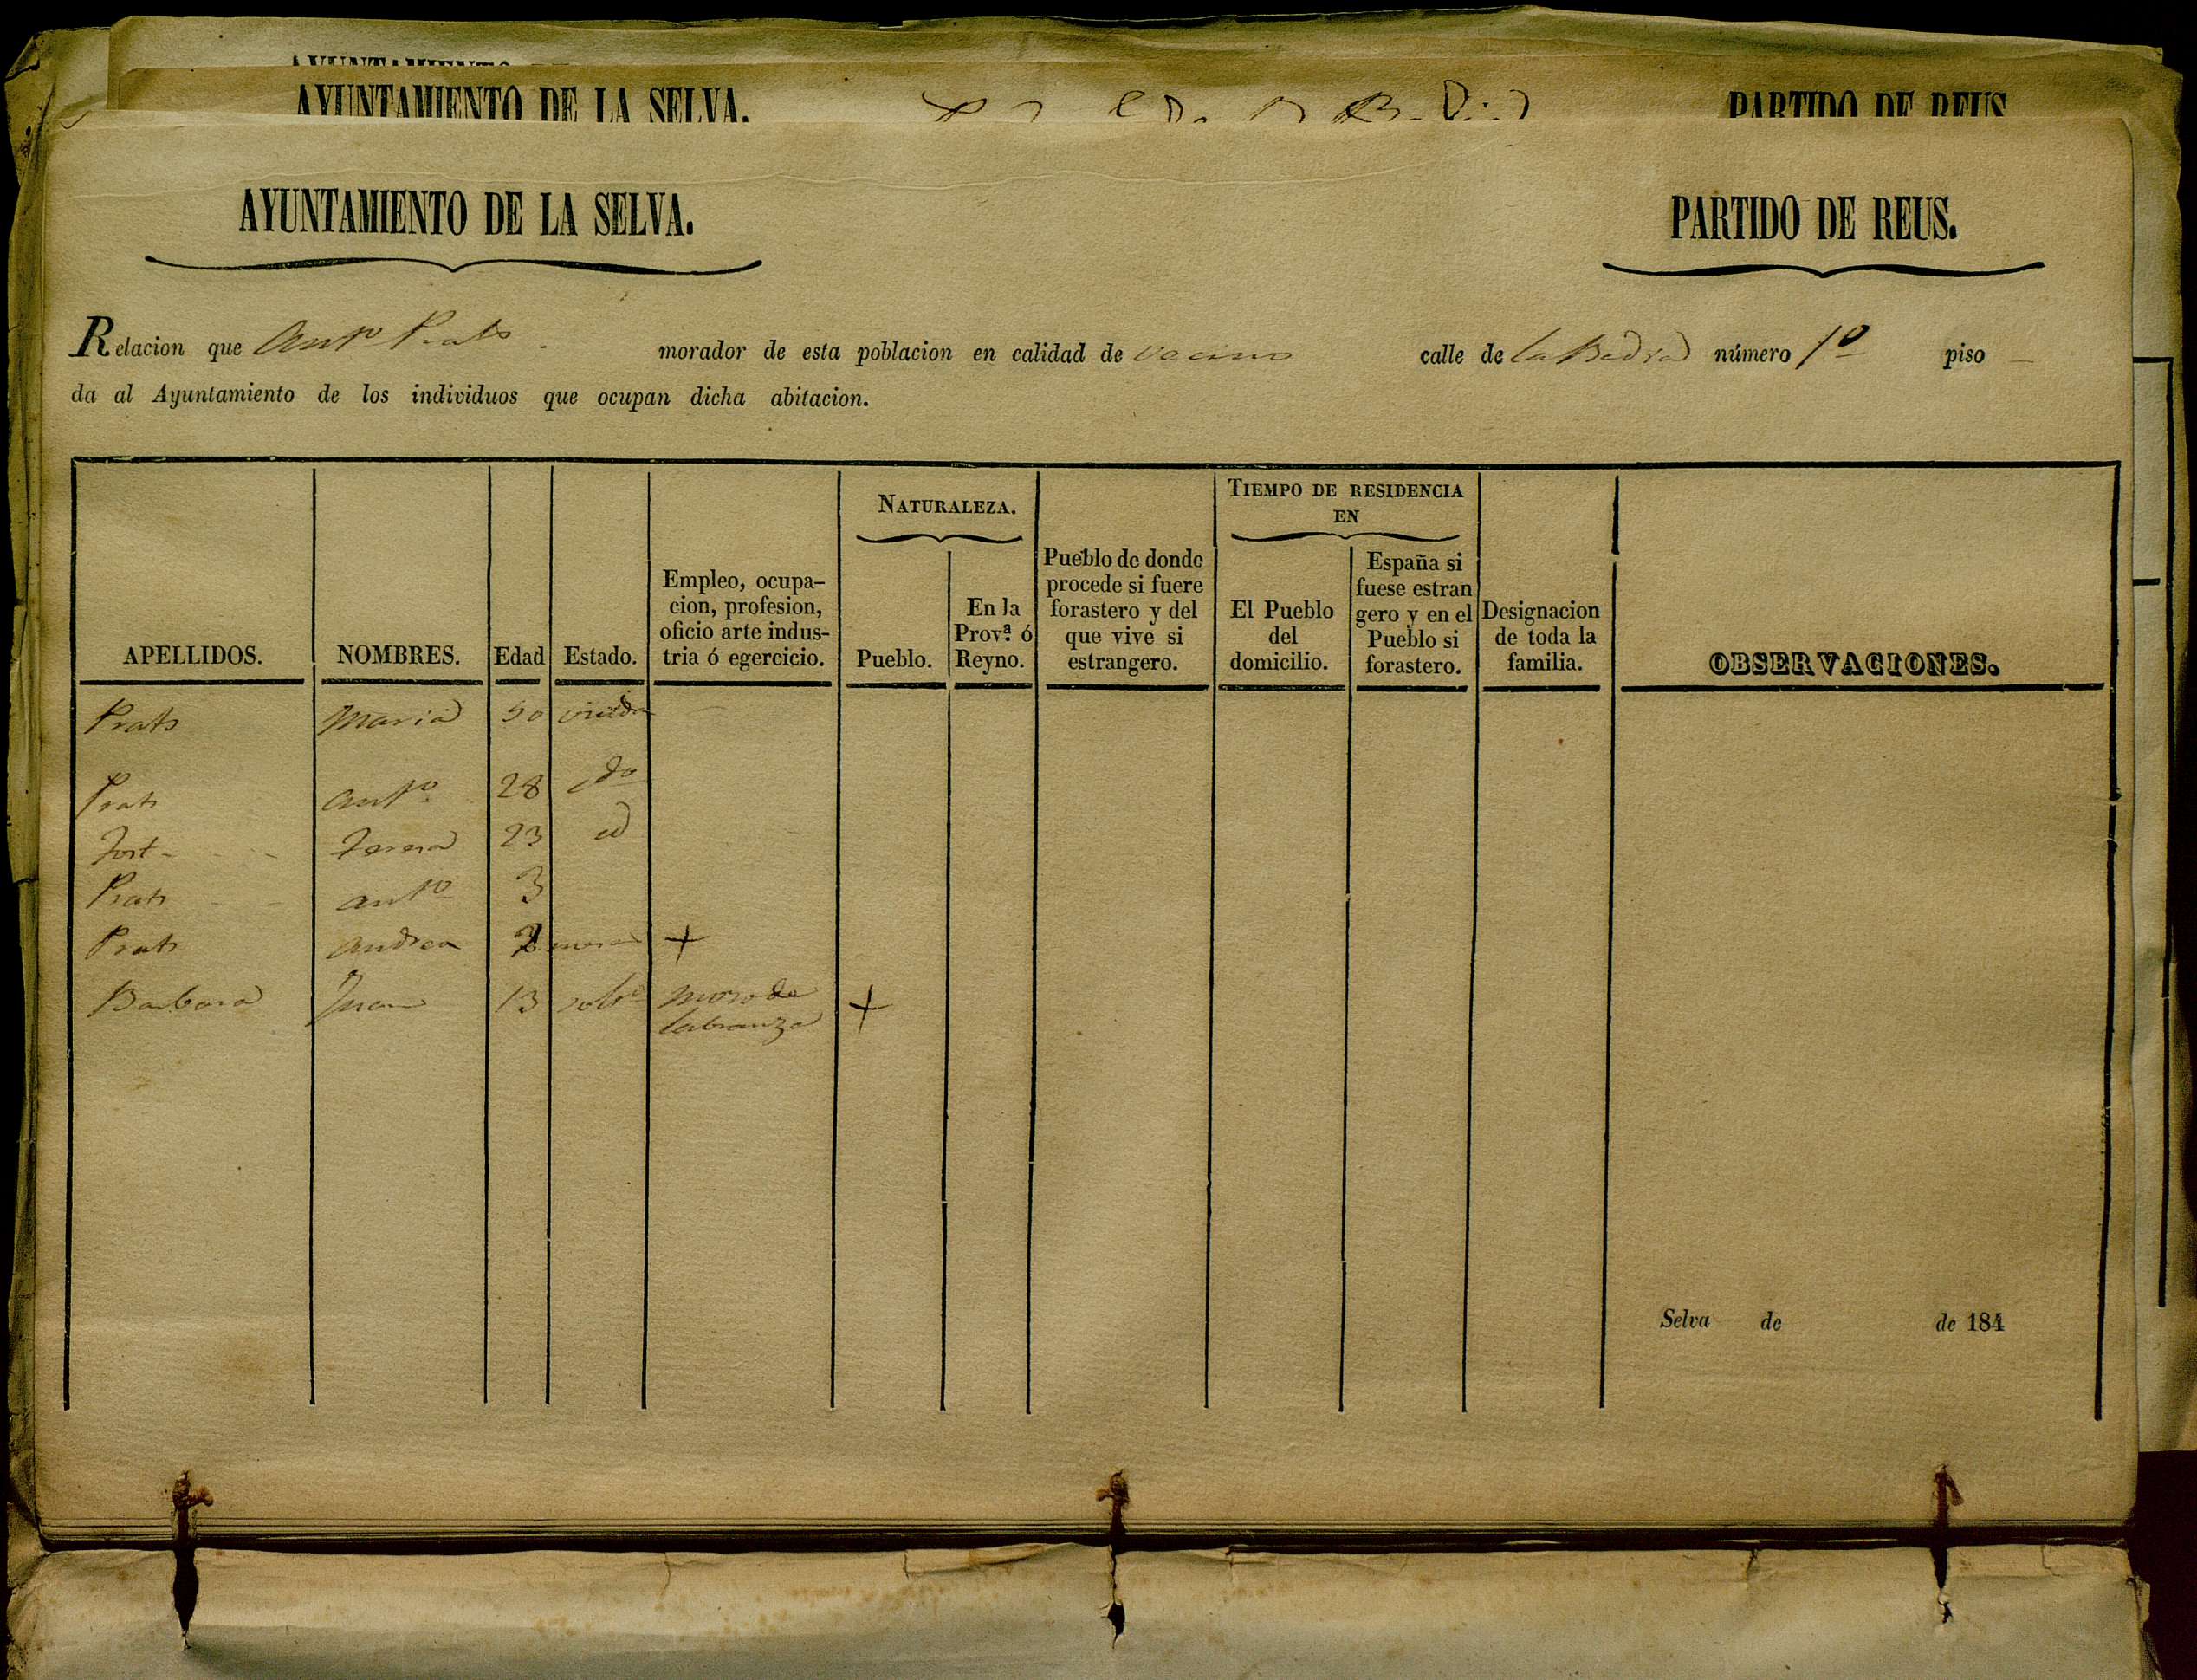 AYUNTAMIENTO DE LA SELVA. PARTIDO DE REUS
AYUNTAMIENTO DE LA SELVA. PARTIDO DE REUS.
Relacion que Antº Prats morador de esta poblacion en calidad de vecino calle de la número 1º piso —
da al Ayuntamiento de los individuos que ocupan dicha abitacion.
APELLIDOS. NOMBRES. Edad Estado. Empleo, ocupa-
cion, profesion,
oficio arte indus-
tria ó egercicio.
NATURALEZA.
Pueblo. En la
Provª. ó
Reyno.
Pueblo de donde
procede si fuere
forastero y del
que vive si
estrangero.
TIEMPO DE RESIDENCIA
EN
El Pueblo
del
domicilio.
España si
fuese estran
gero y en el
Pueblo si
forastero.
Designacion
de toda la
familia.
OBSERVACIONES.
Prats Maria 50 viuda
Prats Antº 28 cdo
Fort Teresa 23 id
Prats Antº 3
Prats Andrea 2 meses +
Barbara Juan 13 solto moso de +
labranza
Selva de de 184